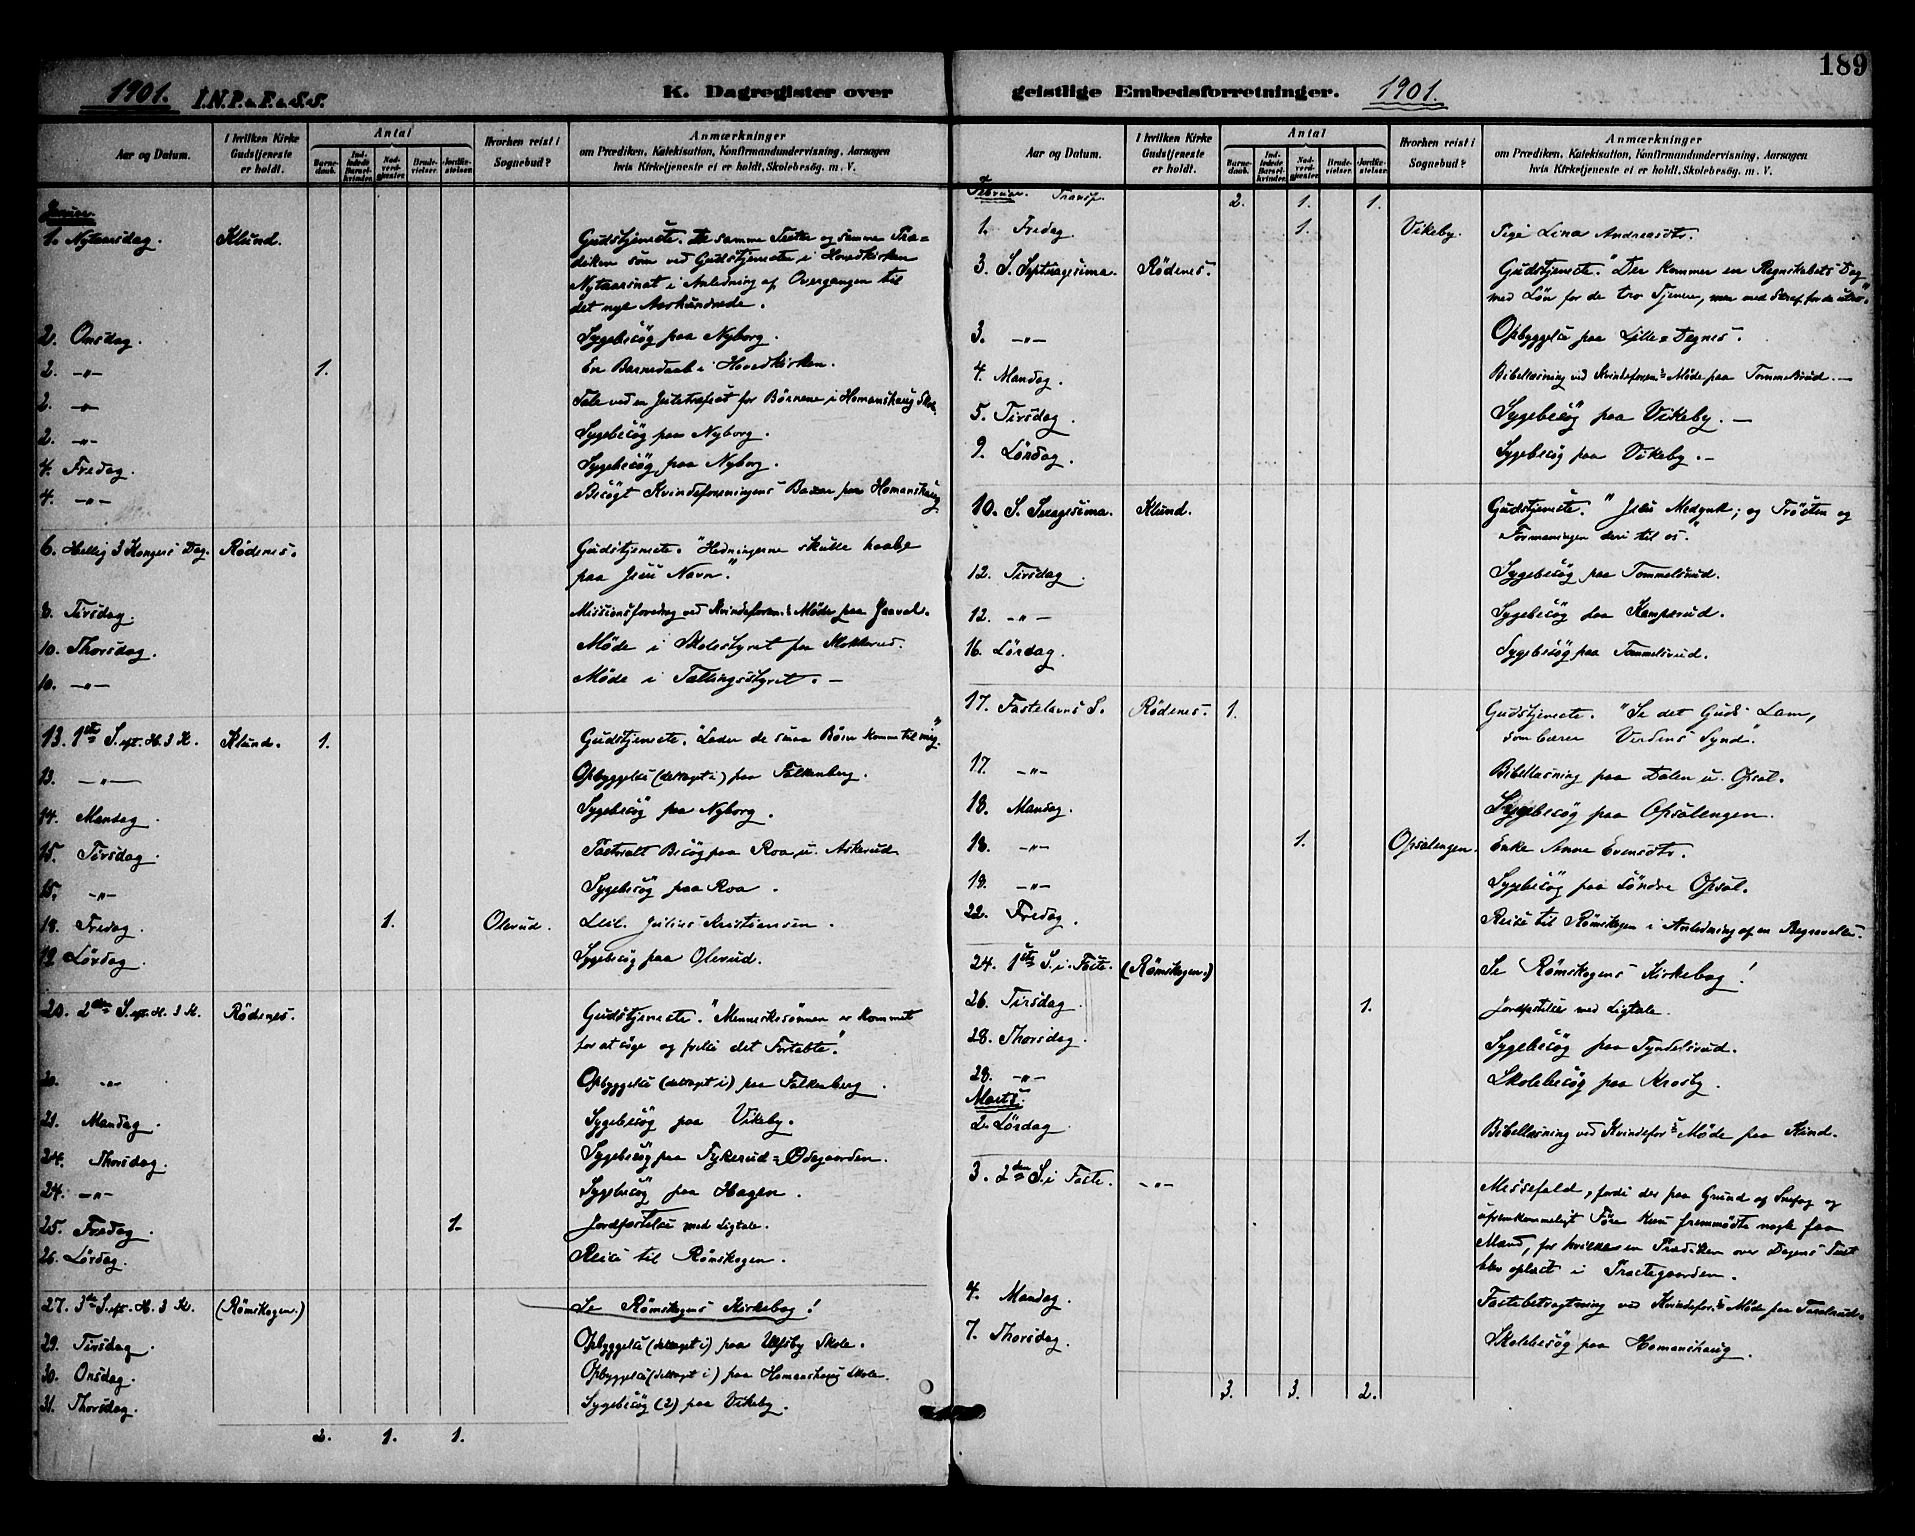 189
1901. I.N.P. & F. & S. S.
K. Dagregister over
Aar og Datum.
I hvilken Kirke Gudstjeneste er holdt.
Antal
Barnedaab.
Indledede Barselkvinder.
Nadverdgjester.
Brudevielser.
Jordfæstelser.
Hvorhen reist i Sognebud?
Anmærkninger
om Prædiken, Katekisation, Konfirmandundervisning, Aarsagen
hvis Kirketjeneste ei er holdt, Skolebesøg. m. V.
Januar.
1. Nytaarsdag. Klund. Gudstjeneste. De samme Texter og samme Præ-
diken som ved Gudstjenesten i Hovedkirken
Nytaarsnat i Anledning af Overgangen til
det nye Aarhundrede.
2. Onsdag. Sygebesøg paa Nyborg.
2. -"- 1. En Barnedaab i Hovedkirken.
2. -"- Tale ved en Juletræfest for Børnene i Homanshaug Skole.
2. -"- Sygebesøg paa Nyborg.
4. Fredag. Sygebesøg paa Nyborg.
4. -"- Besøgt Kvindeforeningens Bazar paa Homanshaug
6. Hellig 3 Kongers Dag. Rødenes. Gudstjeneste. "Hedningerne skulle haabe
paa Jesu Navn."
8. Tirsdag. Missionsforedrag ved Kvindeforen.s Møde paa Jaavel.
10. Thorsdag. Møde i Skolestyret paa Stokkerud.
10. -"- Møde i Tællingsstyret. -
13. 1ste S. eft. H. 3 K. Klund. 1. Gudstjeneste. "Lader de smaa Børn komme til mig."
13. -"- Opbyggelse (deltaget i) paa Falkenberg.
14. Mandag. Sygebesøg paa Nyborg.
15. Tirsdag. Pastoralt Besøg paa Roa u. Askerud.
15. -"- Sygebesøg paa Roa.
18. Fredag. 1. Olerud. Julius Kristiansen.
19 Lørdag. Sygebesøg paa Olerud.
20. 2den S. eft. H. 3 K. Rødenes. Gudstjeneste. "Menneskesønnen er kommet
for at søge og frelse det Fortabte."
20. -"- Opbyggelse (deltaget i) paa Falkenberg.
21. Mandag. Sygebesøg paa Vikeby.
24. Thorsdag. Sygebesøg paa Fykerud-Ødegaarden.
24. -"- Sygebesøg paa Hagen.
25. Fredag. 1. Jordfæstelse med Ligtale.
26. Lørdag. Reise til Rømskogen.
27. 3die S. eft. H. 3 K. (Rømskogen.) Se Rømskogens Kirkebog!
29. Tirsdag. Opbyggelse (deltaget i) paa Ulfsby Skole.
30. Onsdag. Opbyggelse (deltaget i) paa Homanshaug Skole.
31. Thorsdag. Sygebesøg (2) paa Vikeby.
2. 1. 1.
geistlige Embedsforretninger. 1901.
Aar og Datum.
I hvilken Kirke Gudstjeneste er holdt.
Antal
Barnedaab.
Indledede Barselkvinder.
Nadverdgjester.
Brudevielser.
Jordfæstelser.
Hvorhen reist i Sognebud?
Anmærkninger
om Prædiken, Katekisation, Konfirmandundervisning, Aarsagen
hvis Kirketjeneste ei er holdt, Skolebesøg. m. V.
Februar. Transp. 2. 1. 1.
1. Fredag. 1. Vikeby. Pige Lina Andreasdtr.
3. S. Septuagesima. Rødenes. Gudstjeneste. "Der kommer en Regnskabets Dag
med Løn for de tro Tjenere, men med Straf for de utro."
3. -"- Opbyggelse paa Lille-Degnes.
4. Mandag. Bibellæsning ved Kvindeforen.s Møde paa Tommelsrud. -
5. Tirsdag. Sygebesøg paa Vikeby. -
9. Lørdag. Sygebesøg paa Vikeby. -
10. S. Sexagesima. Klund. Gudstjeneste. "Jesu Medynk; og Trøsten og
Formaningen deri til os."
12. Tirsdag. Sygebesøg paa Tommelsrud.
12. -"- Sygebesøg paa Kamperud.
16. Lørdag. Sygebesøg paa Tommelsrud.
17. Fastelavns S. Rødenes. 1. Gudstjeneste. "Se det Guds Lam,
som bærer Verdens Synd".
17. -"- Bibellæsning paa Dalen u. Opsal.
18. Mandag. Sygebesøg paa Opsalengen.
18. -"- 1. Opsalengen. Enke Anne Evensdtr.
19. -"- Sygebesøg paa Søndre Opsal.
22. Fredag. Reise til Rømskogen i Anledning af en Begravelse.
24. 1ste S. i Faste. (Rømskogen.) Se Rømskogens Kirkebog!
26. Tirsdag. 1. Jordfæstelse med Ligtale.
28. Thorsdag. Sygebesøg paa Tyndelsrud.
28. -"- Skolebesøg paa Krosby.
Marts.
2. Lørdag. Bibellæsning ved Kvindefor.s Møde paa Kind.
3. 2den S. i Faste. -"- Messefald, fordi der paa Grund af Snefog og
ufremkommeligt Føre kun fremmødte nogle faa
Mænd, for hvilke en Prædiken over Dagens Text
blev oplæst i Præstegaarden.
4. Mandag. Fastebetragtning ved Kvindefor.s Møde paa
7. Thorsdag. Skolebesøg paa Homanshaug.
3. 3. 2.